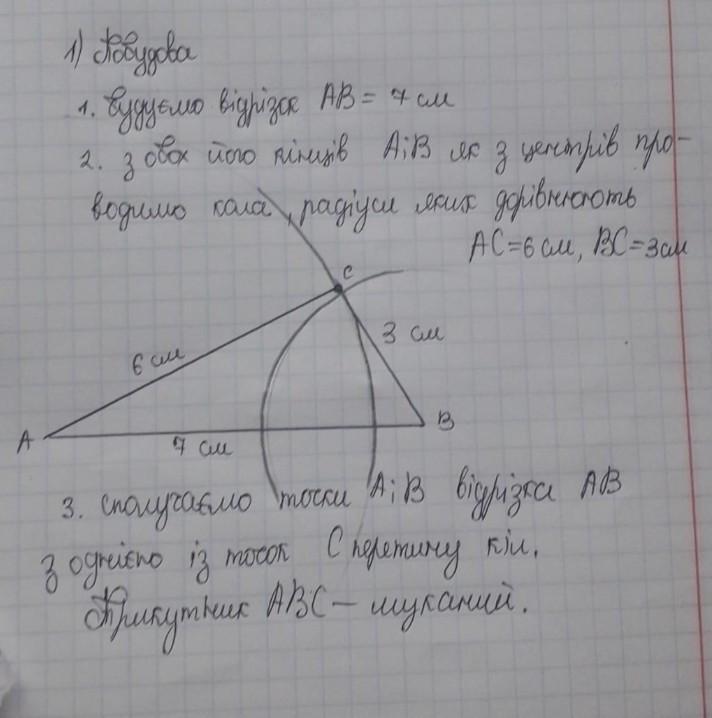 1) Побудова
1. Будуємо відрізок AB = 7 см
2. З обох його кінців A і B як з центрів про-
водимо кола, радіуси яких дорівнюють
AC = 6 см, BC = 3 см
C
6 см
3 см
A
7 см
B
3. сполучаємо точки A і B відрізка AB
з однією із точок C перетину кіл.
Трикутник ABC – шуканий.